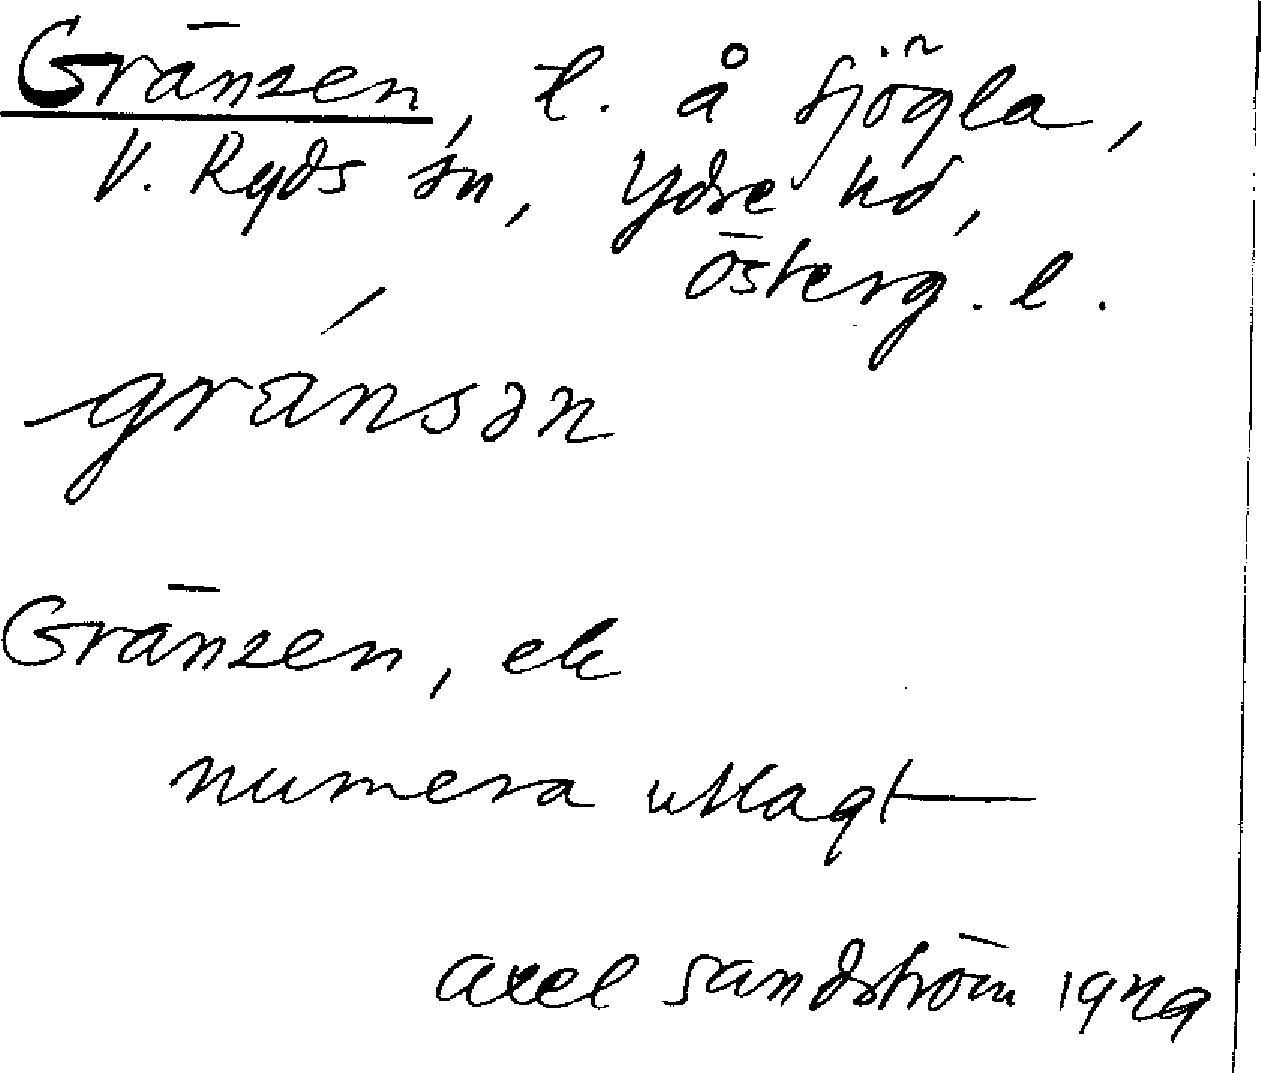 Gränsen, t. å Sjögla,
V. Ryds sn, Ydre hd,
Österg. l.
gränsən
Gränsen, ek
numera utlagt
Axel Sandström 1929